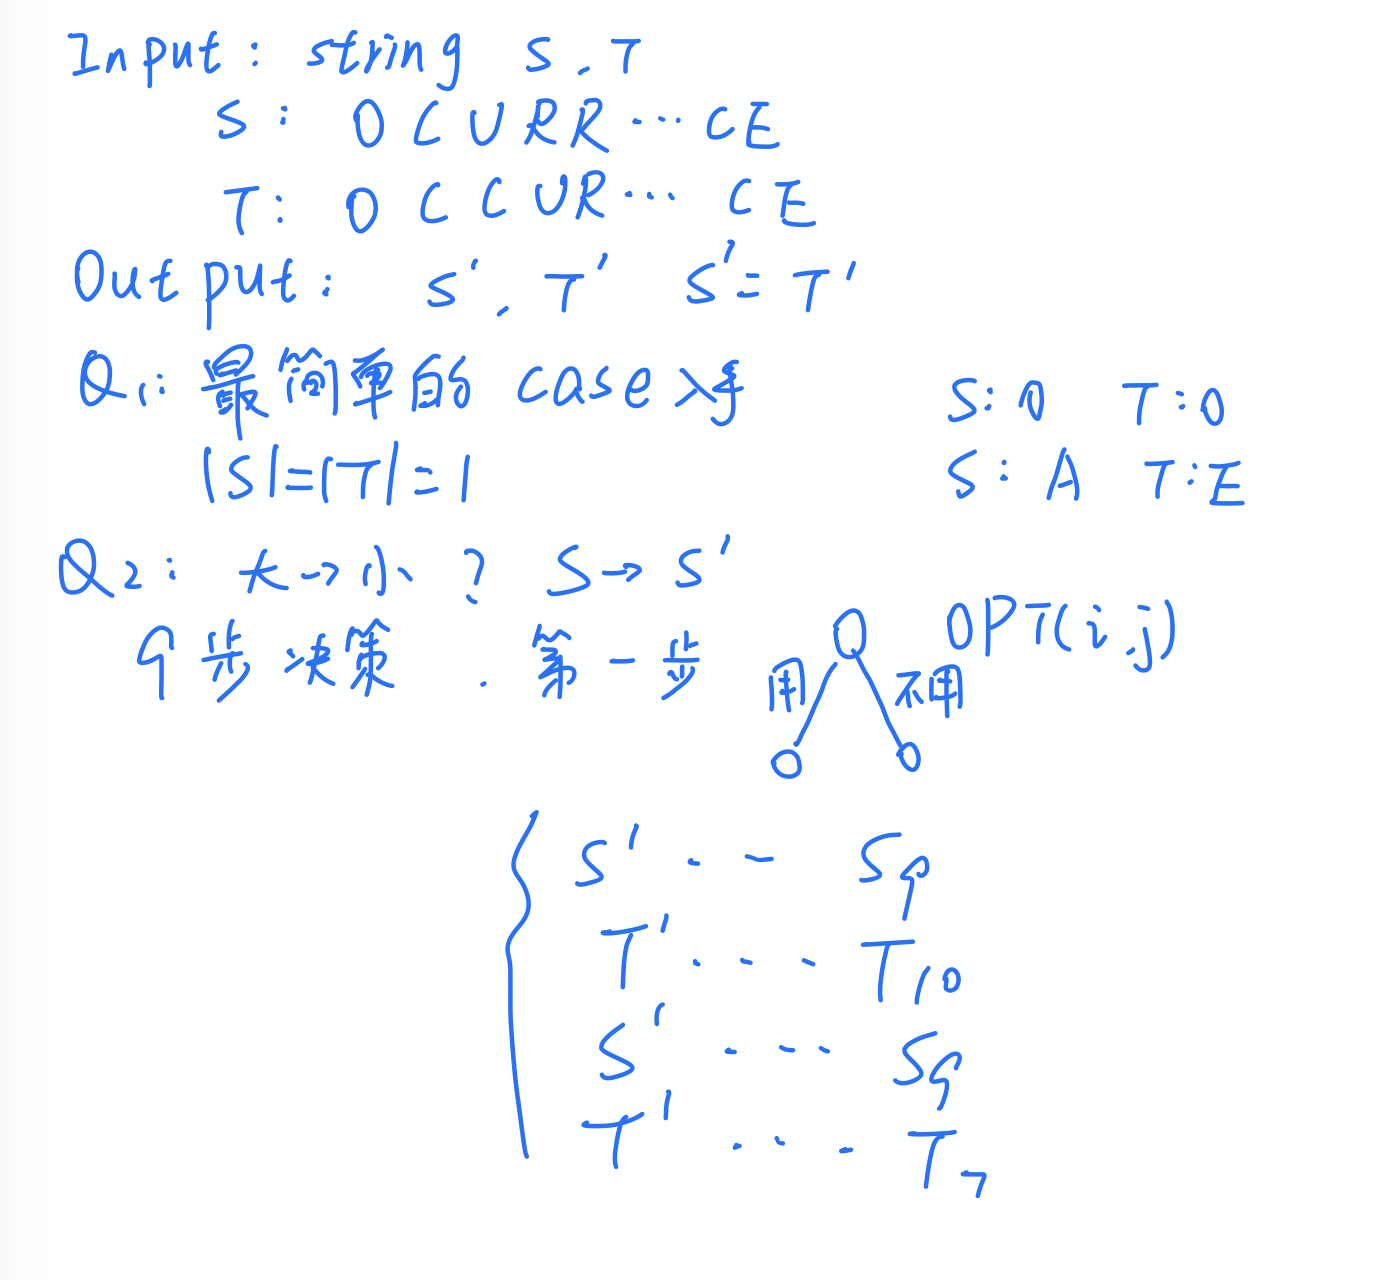 Input: string S, T
S: OCURR...CE
T: OCCUR...CE
Output: S', T' S'=T'
Q1: 最简单的 case 对 S: O T: O
|S|=|T|=1 S: A T: E
Q2: 大→小? S→S'
9步决策. 第一步 OPT(i,j)
用 不用
S' ... S9
T' ... T10
S' ... S9
T' ... T7